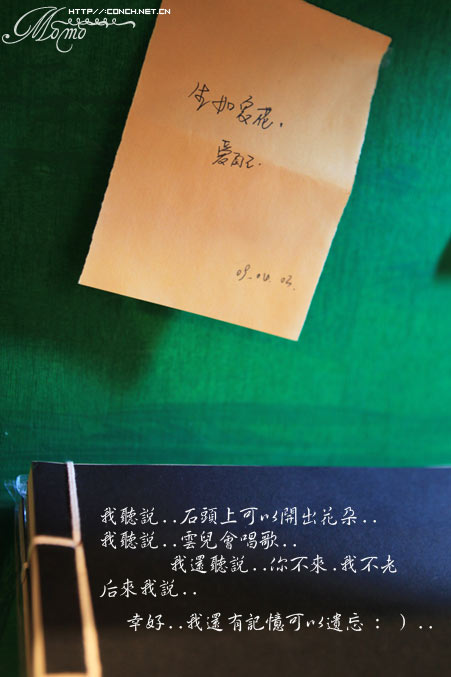 HTTP://CONCH.NET.CN
Momo
生如夏花.
爱
我聽説..石頭上可以開出花朵..
我聽説..雲兒會唱歌..
我還聽説..你不來.我不老
后來我説..
幸好..我還有記憶可以遺忘 : ) ..